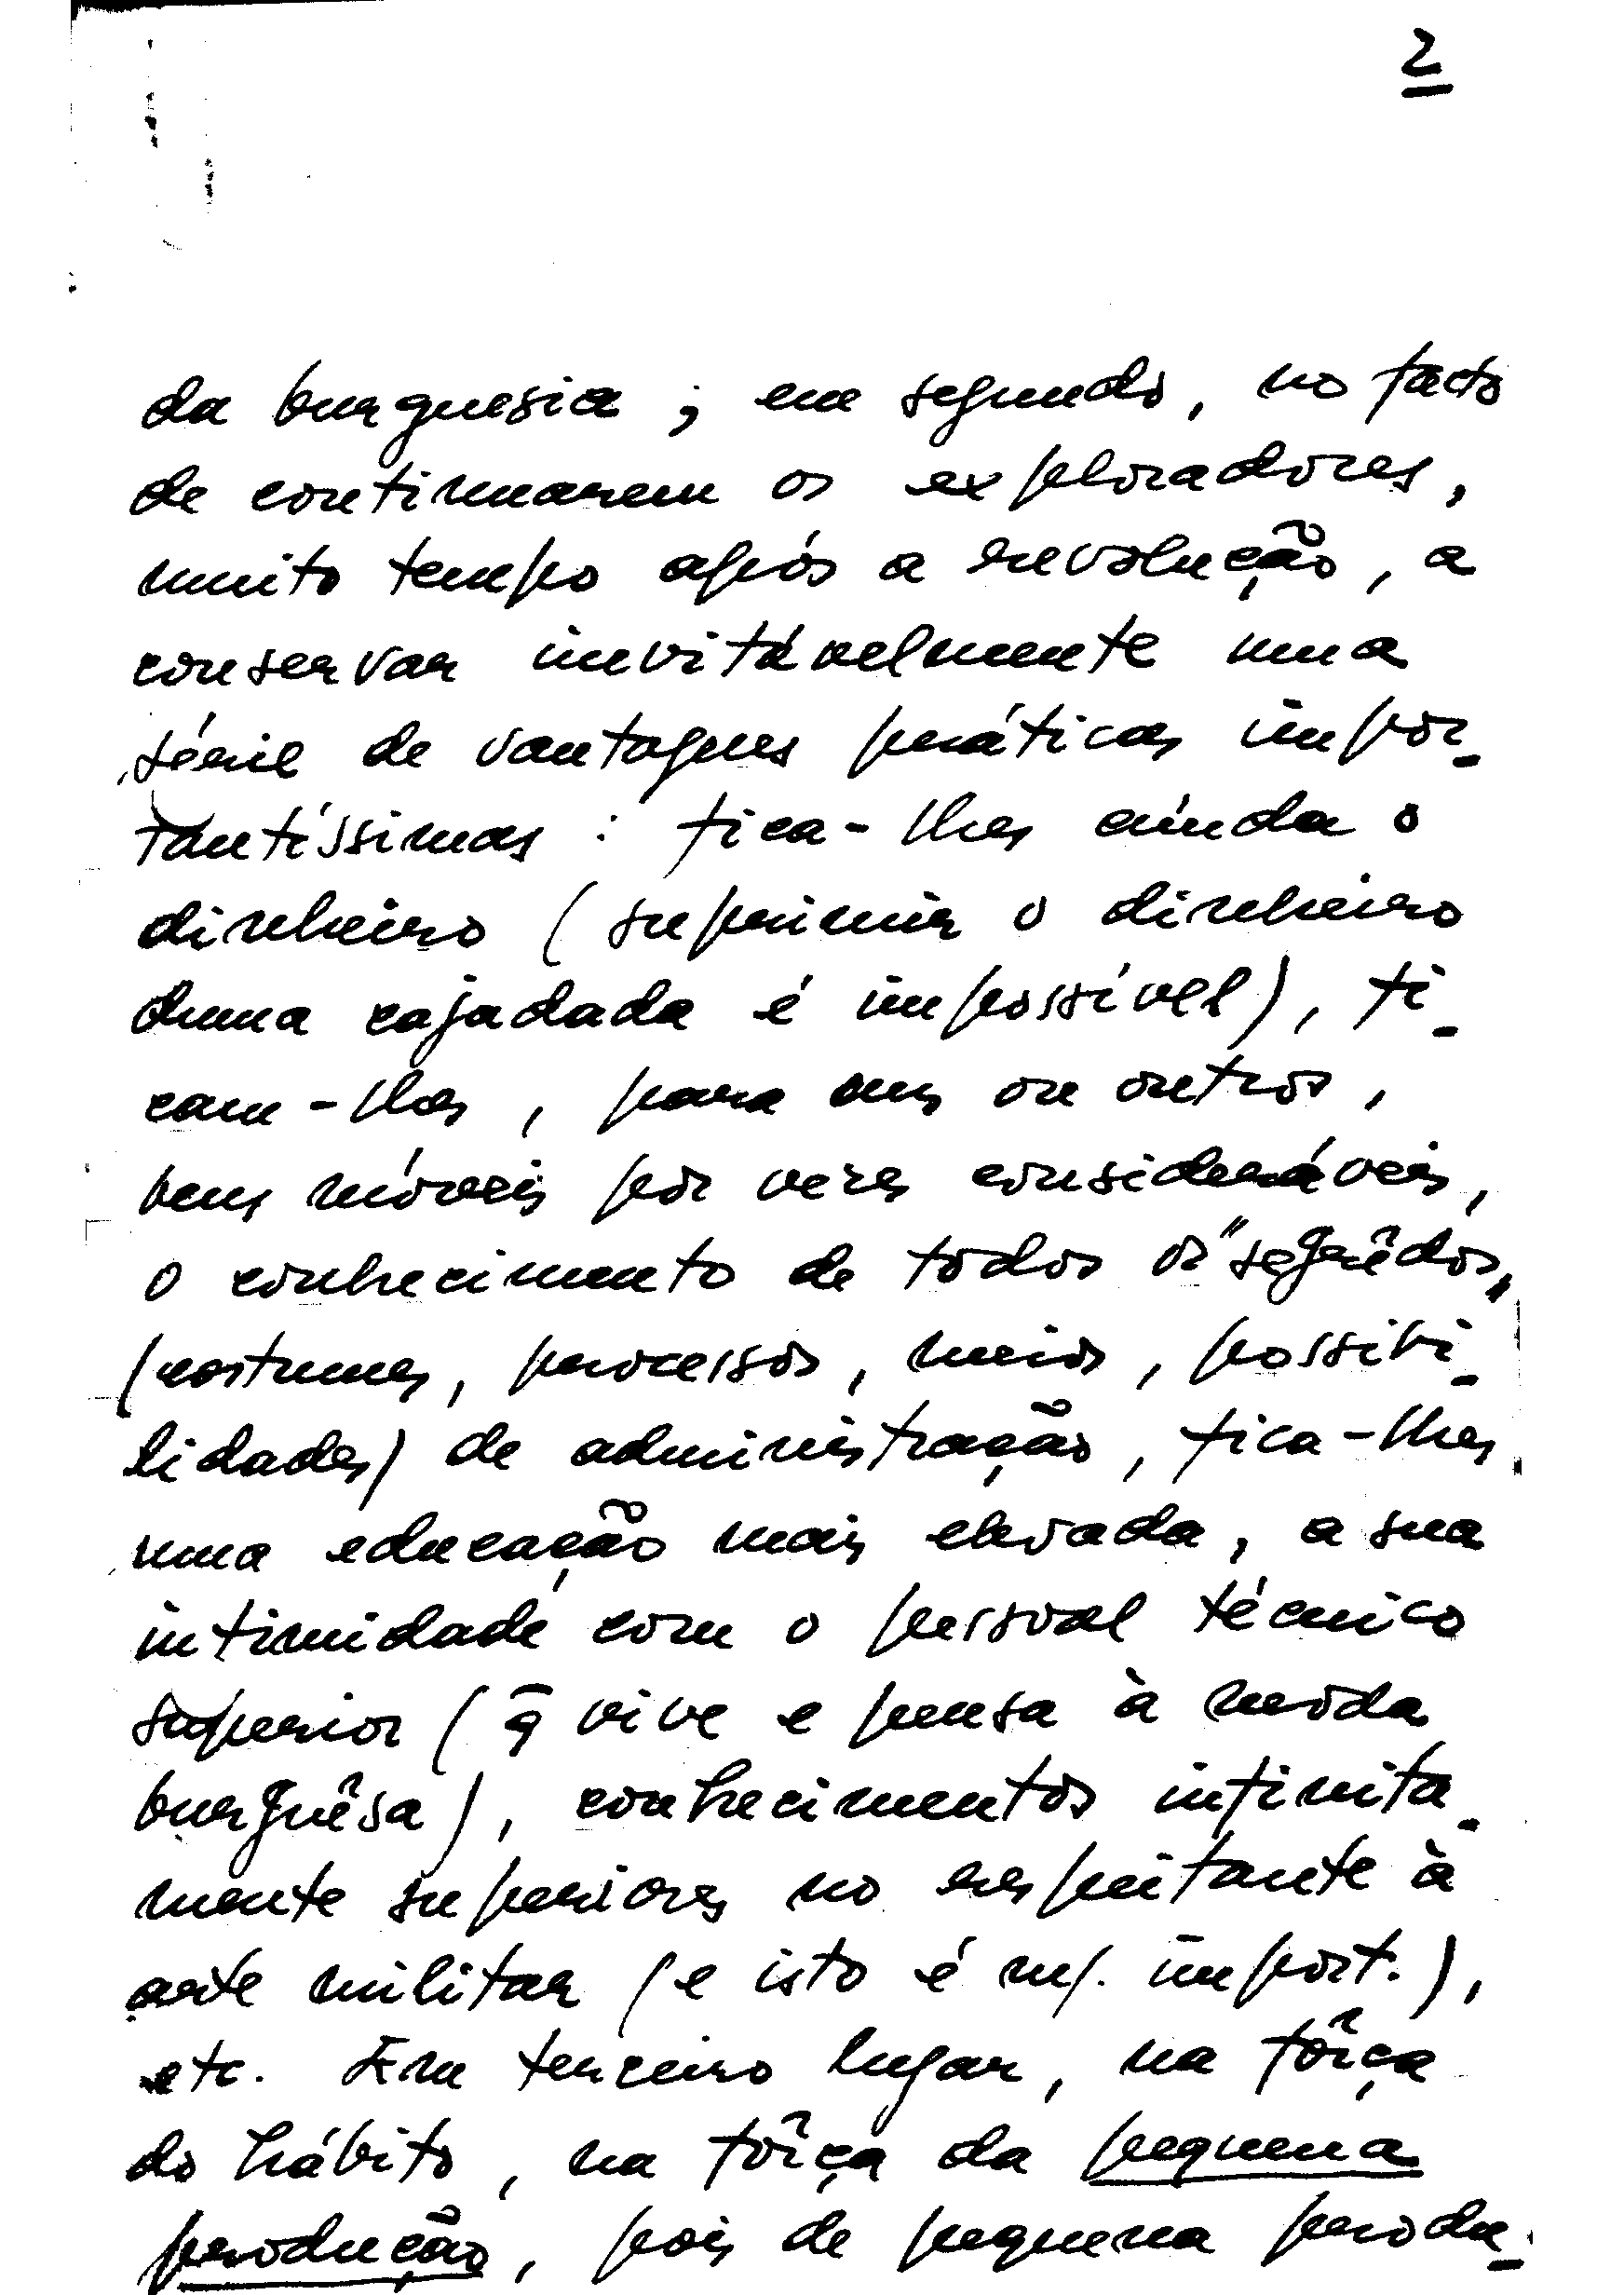 2
da burguesia ; em segundo, no facto
de continuarem os exploradores,
muito tempo após a revolução, a
conservar inevitávelmente uma
série de vantagens práticas impor-
tantíssimas : fica-lhes ainda o
dinheiro (suprimir o dinheiro
duma cajadada é impossível), fi-
cam-lhes, para uns ou outros,
bens móveis por vezes consideráveis,
o conhecimento de todos os "segrêdos"
(costumes, processos, meios, possibi-
lidades) de administração, fica-lhes
uma educação mais elevada, a sua
intimidade com o pessoal técnico
superior (q̄ vive e pensa à moda
burguêsa), conhecimentos infinita-
mente superiores no respeitante à
arte militar (e isto é m/. import.),
etc. Em terceiro lugar, na fôrça
do hábito, na fôrça da pequena
produção, pois de pequena produ-